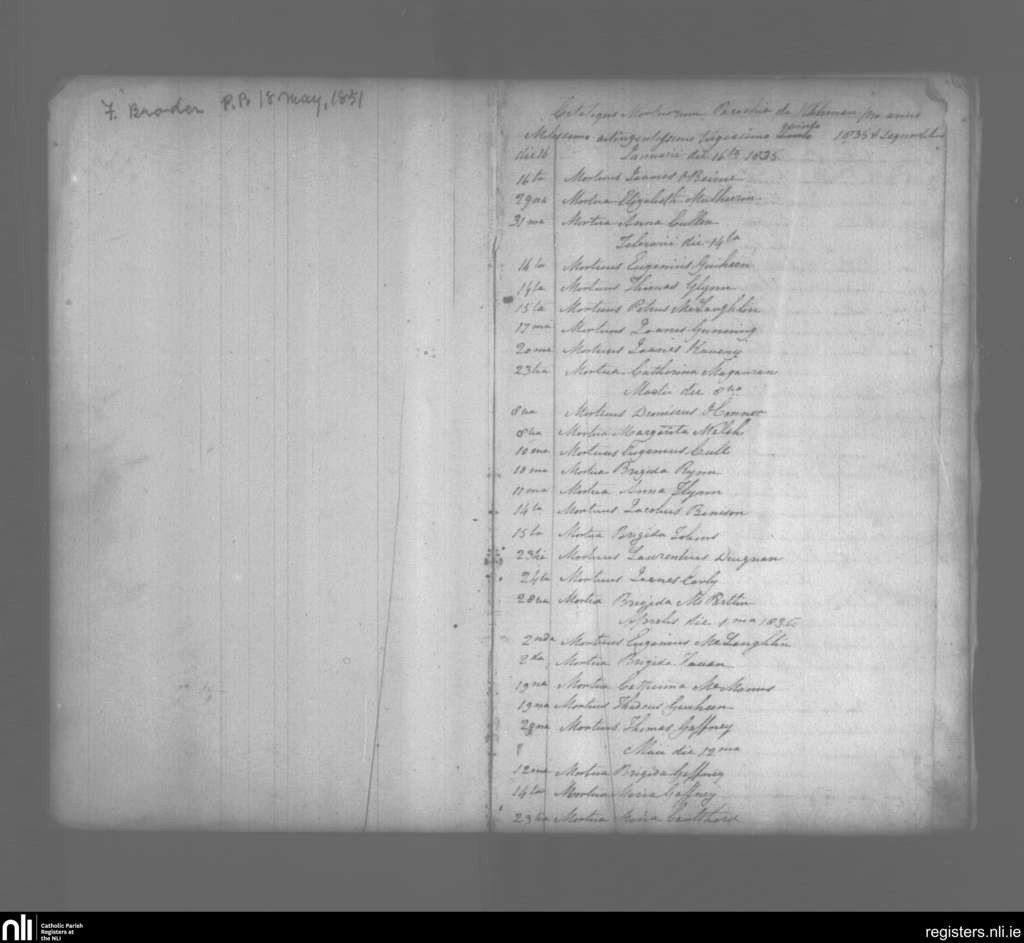 F. Broder P.P. 18 May, 1851
Catalogus Mortuorum Parochia de pro anno
Milessimo octingentessimo trigessimo quinto 1835 & sequentibus
die 16 Januarii die 16ta 1835
16ta Mortuus Joanes O Beirne
29na Mortua Elizabeth Mulheeran
31ma Mortua Anna Cullen
Februarii die 14ta
14ta Mortuus Eugenius Guiheen
14ta Mortuus Thomas Glynn
15ta Mortuus Petrus McLaughlin
17ma Mortuus Joanes Gunning
20ma Mortuus Joanes Kaveny
23tia Mortua Catherina Magauran
Martii die 8va
8va Mortuus Dionisius O Connor
8va Mortua Margarita Welsh
10ma Mortuus Eugenius
10ma Mortua Brigida Rynn
11ma Mortua Anna Flynn
14ta Mortuus Jacobus Benison
15ta Mortua Brigida
23tii Mortuus Laurentius Duignan
24ta Mortuus Joanes Early
28va Mortua Brigida
Aprilis die 1ma 1835
2nda Mortuus Eugenius McLaughlin
2da Mortua Brigida
19na Mortua Catherina McManus
19na Mortuus Guiheen
28na Mortuus Thomas Gaffney
8 Maii die 12ma
12ma Mortua Brigida Gaffney
14ta Mortua Maria Gaffney
23tia Mortua Maria
nli Catholic Parish
Registers at
the NLI
registers.nli.ie